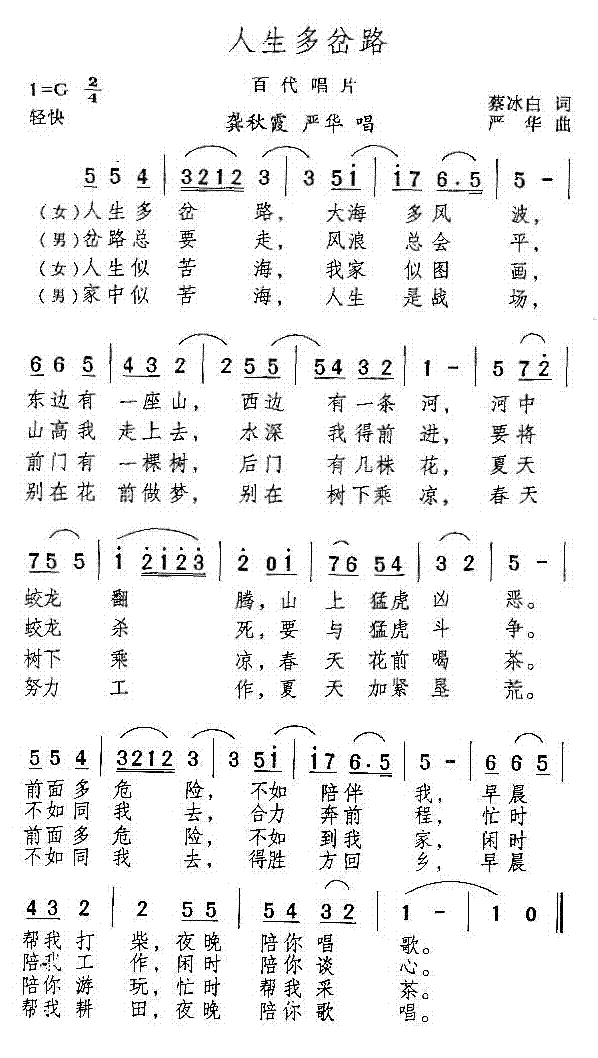 人生多岔路
1=G 2/4
百代唱片
蔡冰白 词
轻快
龚秋霞 严华 唱
严华 曲
5 5 4 | 3212 3 | 3 5i | i7 6.5 | 5 - |
(女)人生多 岔 路, 大海 多风 波,
(男)岔路总 要 走, 风浪 总会 平,
(女)人生似 苦 海, 我家 似图 画,
(男)家中似 苦 海, 人生 是战 场,
6 6 5 | 4 3 2 | 2 5 5 | 54 3 2 | 1 - | 5 7 2 |
东边有 一座山, 西边 有一条 河, 河中
山高我 走上去, 水深 我得前 进, 要将
前门有 一棵树, 后门 有几株 花, 夏天
别在花 前做梦, 别在 树下乘 凉, 春天
75 5 | i 2i23 | 2 0i | 76 54 | 3 2 | 5 - |
蛟龙 翻 腾, 山 上 猛虎 凶 恶。
蛟龙 杀 死, 要 与 猛虎 斗 争。
树下 乘 凉, 春 天 花前 喝 茶。
努力 工 作, 夏 天 加紧 垦 荒。
5 5 4 | 3212 3 | 3 5i | i7 6.5 | 5 - | 6 6 5 |
前面多 危 险, 不如 陪伴 我, 早晨
不如同 我 去, 合力 奔前 程, 忙时
前面多 危 险, 不如 到我 家, 闲时
不如同 我 去, 得胜 方回 乡, 早晨
4 3 2 | 2 5 5 | 5 4 32 | 1 - | 1 0 ‖
帮我打 柴, 夜晚 陪你唱 歌。
陪我工 作, 闲时 陪你谈 心。
陪你游 玩, 忙时 帮我采 茶。
帮我耕 田, 夜晚 陪你歌 唱。